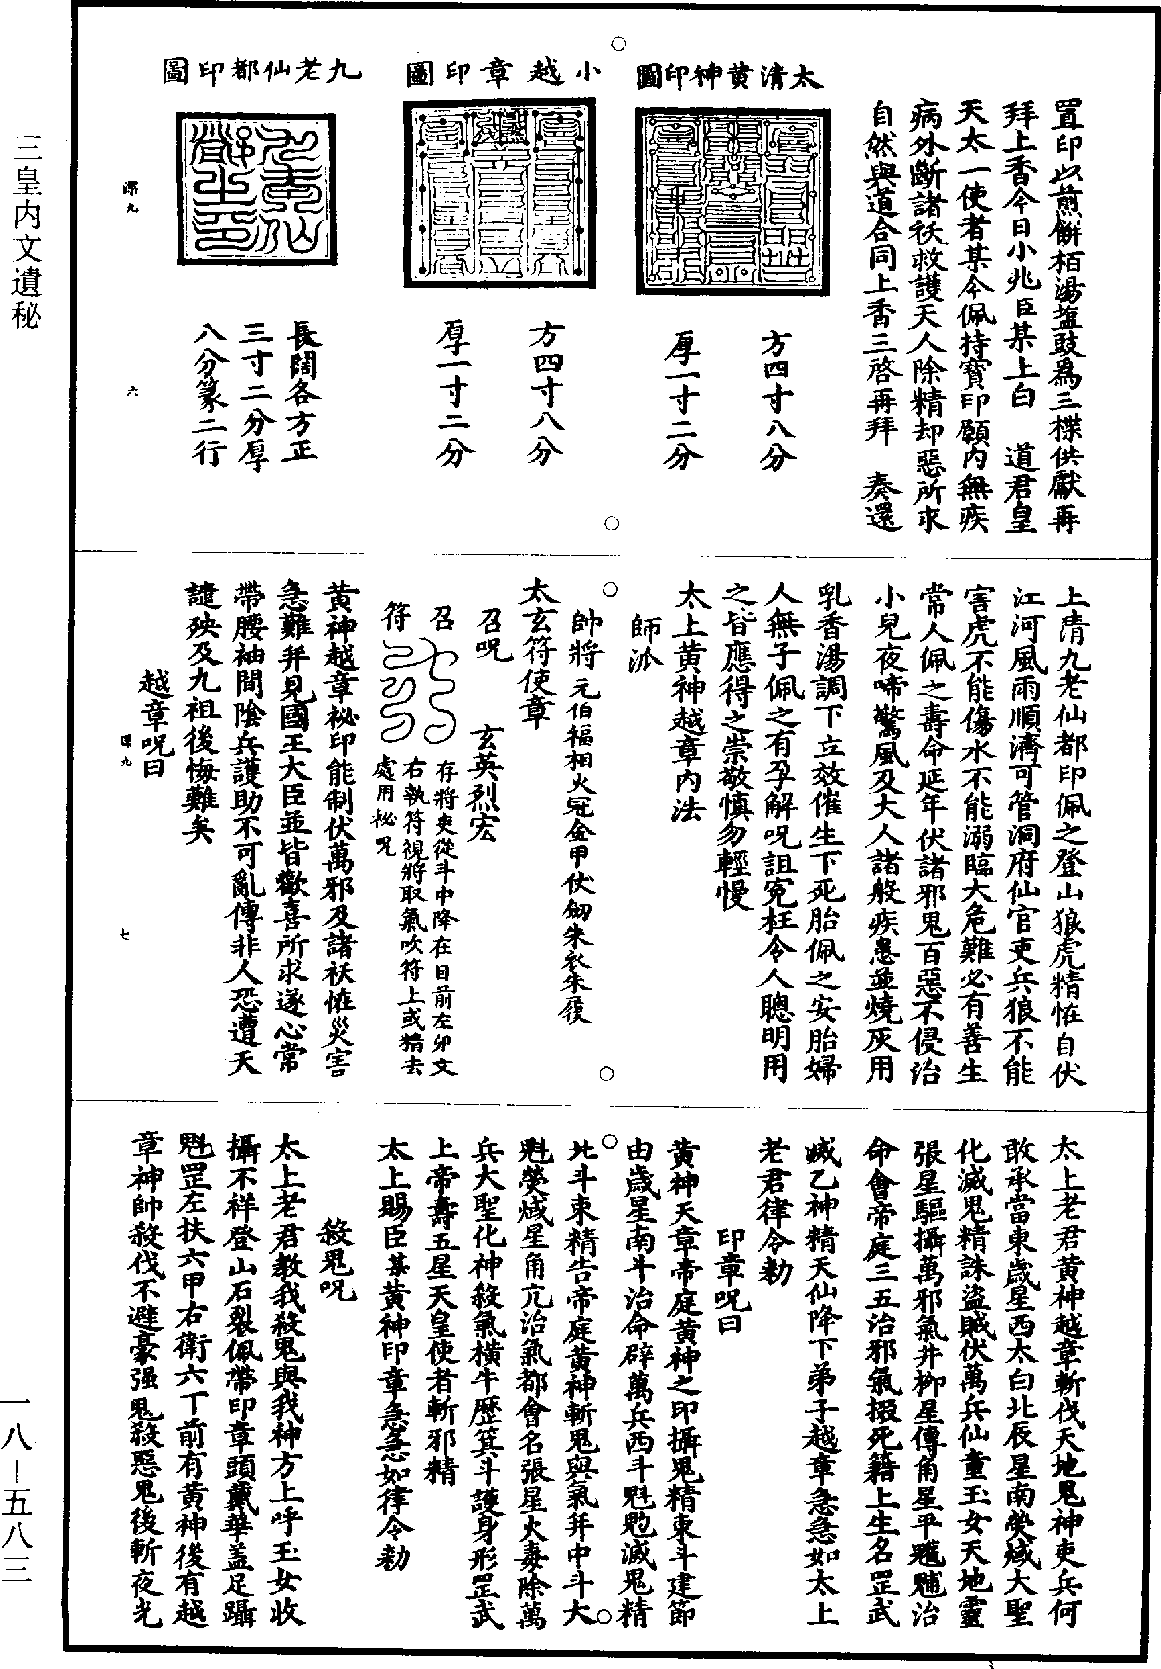 三皇內文遺秘
置印以煎餅栢湯塩豉爲三楪供獻再
拜上香今日小兆臣某上白　道君皇
天太一使者某今佩持寶印願内無疾
病外斷諸祅救護天人除精却惡所求
自然與道合同上香三啓再拜　奏還
太清黄神印圖
方四寸八分
厚一寸二分
小越章印圖
方四寸八分
厚一寸二分
九老仙都印圖
九老仙
都之印
長闊各方正
三寸二分厚
八分篆二行
深九
六
上清九老仙都印佩之登山狼虎精恠自伏
江河風雨順濟可管洞府仙官吏兵狼不能
害虎不能傷水不能溺臨大危難必有善生
常人佩之壽命延年伏諸邪鬼百惡不侵治
小兒夜啼驚風及大人諸般疾患並燒灰用
乳香湯調下立效催生下死胎佩之安胎婦
人無子佩之有孕解呪詛寃枉令人聰明用
之皆應得之崇敬慎勿輕慢
太上黄神越章内法
師派
帥將　元伯福相火冠金甲仗劒朱衣朱履
太玄符使章
召呪　玄英烈宏
召
符
存將吏從斗中降在目前左卯文
右執符視將取氣吹符上或精去
處用秘呪
黄神越章秘印能制伏萬邪及諸祅恠災害
急難拜見國王大臣並皆歡喜所求遂心常
帶腰袖間陰兵護助不可亂傳非人恐遭天
譴殃及九祖後悔難矣
越章呪曰
深九
七
太上老君黄神越章斬伐天地鬼神吏兵何
敢承當東歲星西太白北辰星南熒惑大聖
化滅鬼精誅盜賊伏萬兵仙童玉女天地靈
張星驅攝萬邪氣井柳星傳角星平魒魓治
命會帝庭三五治邪氣掇死籍上生名罡武
滅乙神精天仙降下弟子越章急急如太上
老君律令勑
印章呪曰
黄神天章帝庭黄神之印攝鬼精東斗建節
由歲星南斗治命辟萬兵西斗魁魒滅鬼精
北斗束精告帝庭黄神斬鬼與氣并中斗大
魁熒惑星角亢治氣都會名張星火毒除萬
兵大聖化神殺氣橫牛歷箕斗護身形罡武
上帝壽五星天皇使者斬邪精
太上賜臣某黄神印章急急如律令勑
殺鬼呪
太上老君教我殺鬼與我神方上呼玉女收
攝不祥登山石裂佩帶印章頭戴華蓋足躡
魁罡左扶六甲右衛六丁前有黄神後有越
章神帥殺伐不避豪强鬼殺惡鬼後斬夜光
一八—五八三